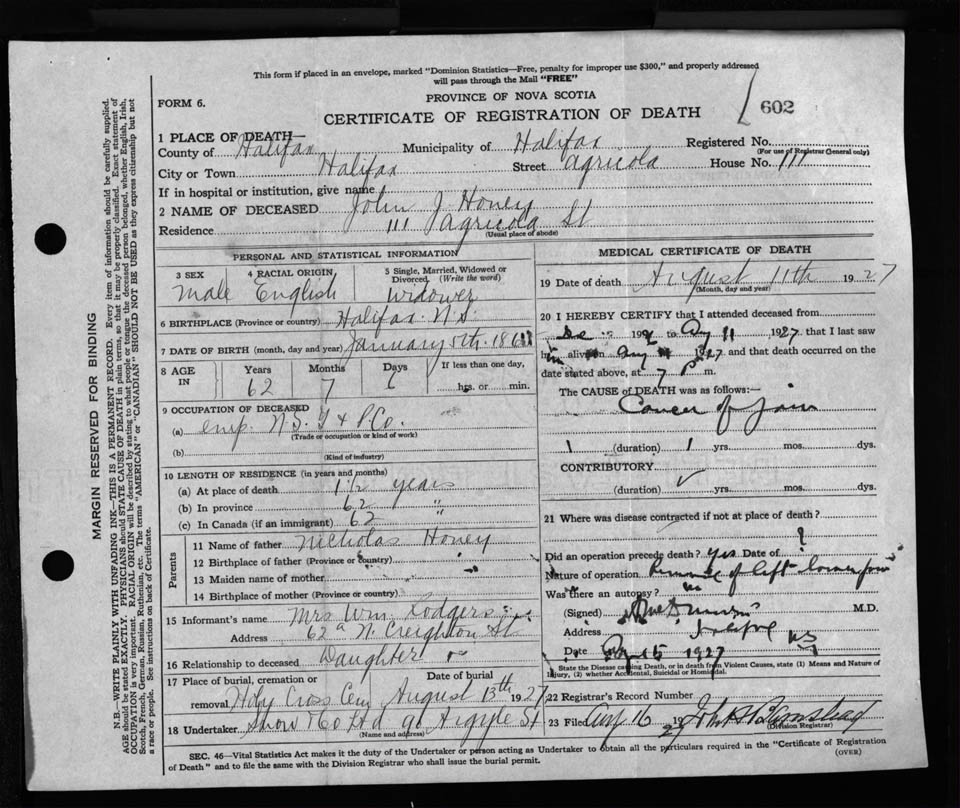 This form if placed in an envelope, marked "Dominion Statistics—Free, penalty for improper use $300," and properly addressed
will pass through the Mail "FREE"
PROVINCE OF NOVA SCOTIA
FORM 6.
CERTIFICATE OF REGISTRATION OF DEATH
602
1 PLACE OF DEATH—
County of Halifax Municipality of Halifax Registered No.
(For use of Registrar General only)
City or Town Halifax Street Agricola House No. 111
If in hospital or institution, give name
2 NAME OF DECEASED John J Honey
Residence 111 Agricola St
(Usual place of abode)
PERSONAL AND STATISTICAL INFORMATION
3 SEX 4 RACIAL ORIGIN 5 Single, Married, Widowed or
Divorced. (Write the word)
Male English Widower
6 BIRTHPLACE (Province or country) Halifax N.S.
7 DATE OF BIRTH (month, day and year) January 5th
8 AGE IN Years Months Days If less than one day,
62 7 6 hrs. or min.
9 OCCUPATION OF DECEASED
(a) emp. N.S. T & P Co.
(Trade or occupation or kind of work)
(b)
(Kind of industry)
10 LENGTH OF RESIDENCE (in years and months)
(a) At place of death 1 1/2 years
(b) In province 62 "
(c) In Canada (if an immigrant) 62
Parents
11 Name of father Nicholas Honey
12 Birthplace of father (Province or country)
13 Maiden name of mother
14 Birthplace of mother (Province or country)
15 Informant's name Mrs Wm. Rodgers
Address 62a N. Creighton St
16 Relationship to deceased Daughter
17 Place of burial, cremation or removal Date of burial
Holy Cross Cem August 13th 1927
18 Undertaker Snow & Co Ltd 90 Argyle St
(Name and address)
MEDICAL CERTIFICATE OF DEATH
19 Date of death August 11th 1927
(Month, day and year)
20 I HEREBY CERTIFY that I attended deceased from
to Aug 11, 1927 that I last saw
him alive on Aug 1927 and that death occurred on the
date stated above, at 7 P m.
The CAUSE OF DEATH was as follows:—
Cancer of Jaw
(duration) 1 yrs. mos. dys.
CONTRIBUTORY
(duration) yrs. mos. dys.
21 Where was disease contracted if not at place of death?
Did an operation precede death? Yes Date of ?
Nature of operation Removal of left lower jaw
Was there an autopsy? no
(Signed) M.D.
Address Halifax NS
Date Aug 15 1927
State the Disease causing Death, or in death from Violent Causes, state (1) Means and Nature of
Injury, (2) whether Accidental, Suicidal or Homicidal.
22 Registrar's Record Number
23 Filed Aug 16 1927 John H Barnstead
(Division Registrar)
SEC. 46—Vital Statistics Act makes it the duty of the Undertaker or person acting as Undertaker to obtain all the particulars required in the "Certificate of Registration
of Death" and to file the same with the Division Registrar who shall issue the burial permit.
(OVER)
MARGIN RESERVED FOR BINDING
N.B.—WRITE PLAINLY WITH UNFADING INK—THIS IS A PERMANENT RECORD. Every item of information should be carefully supplied.
AGE should be stated EXACTLY. PHYSICIANS should STATE CAUSE OF DEATH in plain terms, so that it may be properly classified. Exact statement of
OCCUPATION is very important. RACIAL ORIGIN will be described by stating to what people or tongue the deceased person belonged, whether English, Irish,
Scotch, French, German, Russian, Ruthenian, etc. The terms "AMERICAN" or "CANADIAN" SHOULD NOT BE USED as they express citizenship but not
a race or people. See instructions on back of Certificate.